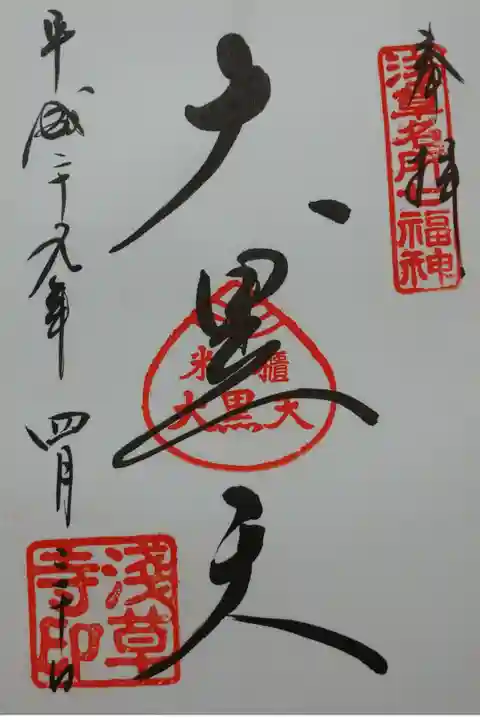 奉拝
浅草名所七福神
大黒天
米櫃
大黒天
平成二十九年 四月 二十日
淺草
寺印